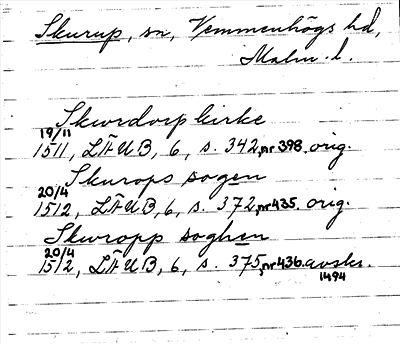 Skurup, sn, Vemmenhögs hd,
Malm. l.
Skwrdorp kirke
19/11
1511, LÄUB, 6, s. 342, nr 398. orig.
Skurops sogen
20/4
1512, LÄUB, 6, s. 372, nr 435. orig.
Skwropp soghen
20/4
1512, LÄUB, 6, s. 375, nr 436. avskr.
1494